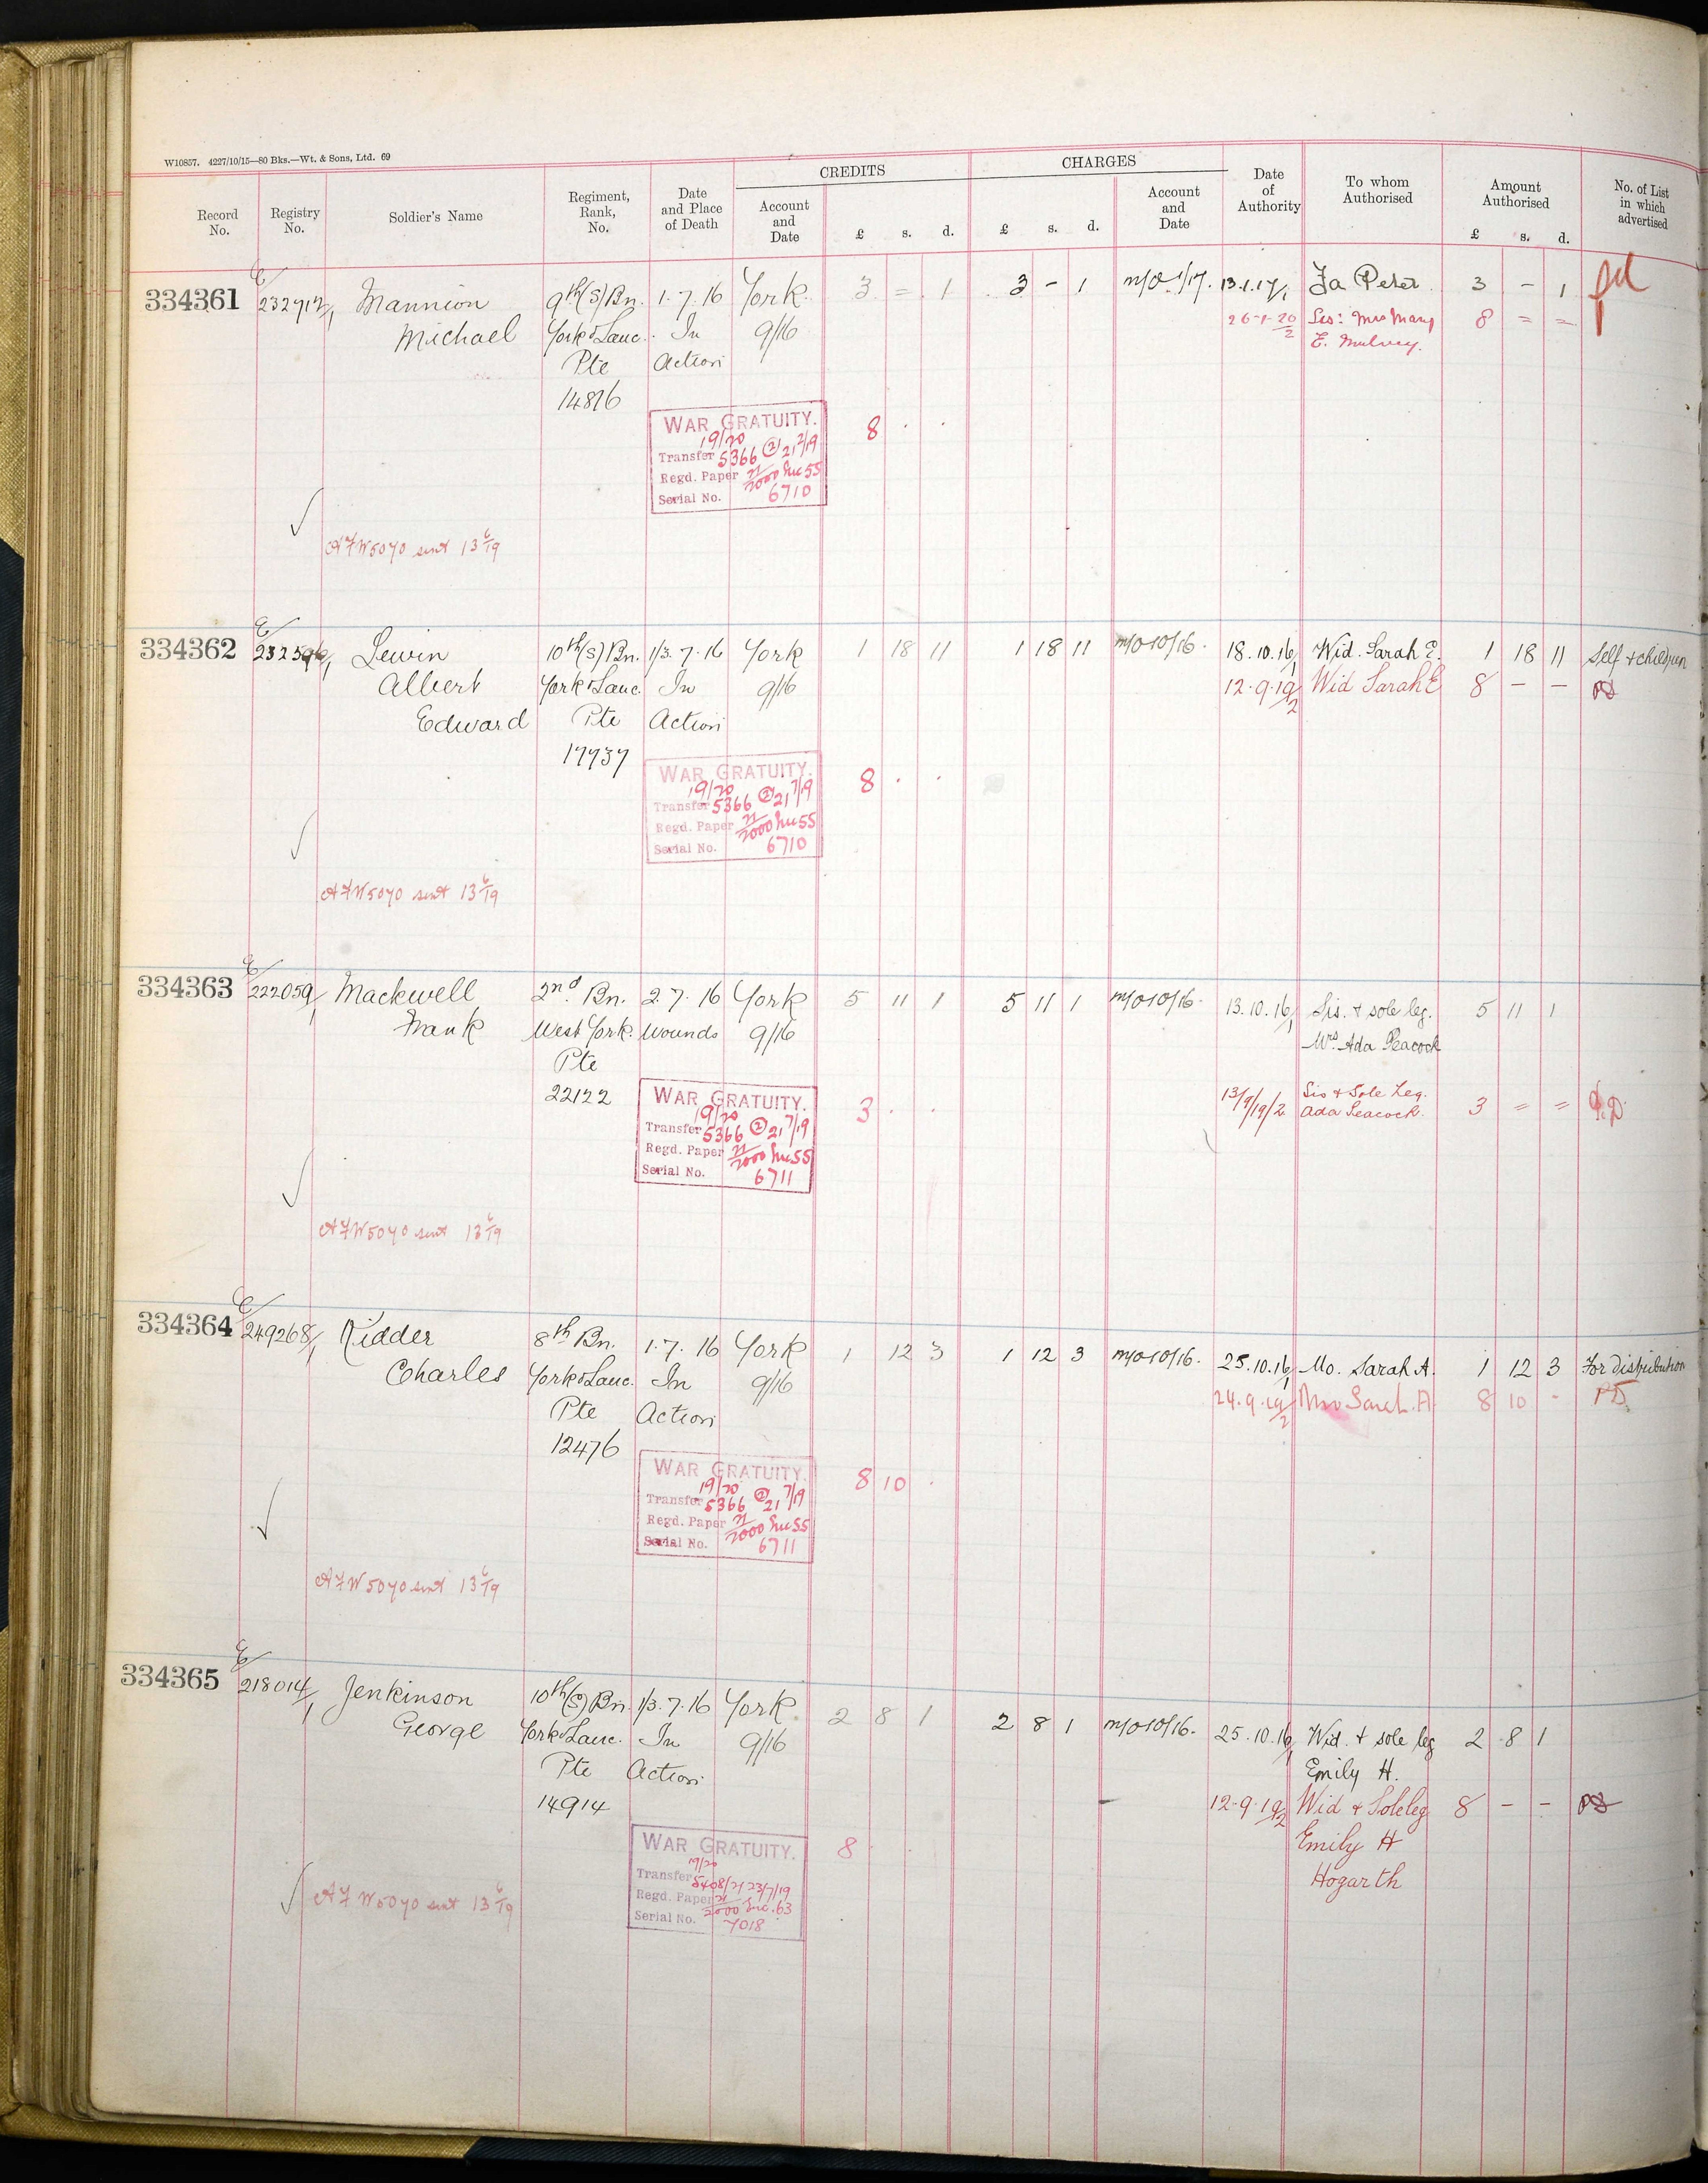 W10857. 4227/10/15—80 Bks.—Wt. & Sons, Ltd. 69
CREDITS CHARGES
Record No. Registry No. Soldier's Name Regiment, Rank, No. Date and Place of Death Account and Date £ s. d. £ s. d. Account and Date Date of Authority To whom Authorised Amount Authorised £ s. d. No. of List in which advertised
334361 E/ Mannion 9th (S) Bn. 1.7.16 York 3 = 1 3 - 1 1/17. 13.1.17/1 Fa Peter 3 - 1
Michael York & Lanc. In 9/16 26-1-20/2 Sis: Mrs Mary 8 = =
Pte Action E. Mulvey.
14876
WAR GRATUITY. 8 . .
19/20
Transfer 5366 (2) 21 7/19
Regd. Paper 21/2000 Inc 55
Serial No. 6710
AFW5070 sent 13 6/19
334362 E/ Lewin 10th (S) Bn. 1/3.7.16 York 1 18 11 1 18 11 M/O 10/16. 18.10.16/1 Wid. Sarah E. 1 18 11 Self & children
Albert York & Lanc. In 9/16 12.9.19/2 Wid Sarah E 8 - -
Edward Pte Action
17737
WAR GRATUITY. 8 . .
19/20
Transfer 5366 (2) 21 7/19
Regd. Paper 21/2000 Inc 55
Serial No. 6710
AFW5070 sent 13 6/19
334363 E/222059/1 Mackwell 2nd. Bn. 2.7.16 York 5 11 1 5 11 1 M/O 10/16. 13.10.16/1 Sis. & sole leg. 5 11 1
Frank West York. Wounds 9/16 Mrs. Ada Peacock
Pte
22122
WAR GRATUITY. 3 . . 13/9/19/2 Sis & Sole Leg. 3 = =
19/20 Ada Peacock.
Transfer 5366 (2) 21 7/19
Regd. Paper 21/2000 Inc 55
Serial No. 6711
AFW5070 sent 13 6/19
334364 E/249268/1 Kidder 8th Bn. 1.7.16 York 1 12 3 1 12 3 M/O 10/16. 25.10.16/1 Mo. Sarah A. 1 12 3 For distribution
Charles York & Lanc. In 9/16 24.9.19/2 Mo Sarah A 8 10 -
Pte Action
12476
WAR GRATUITY. 8 10 .
19/20
Transfer 5366 (2) 21 7/19
Regd. Paper 21/2000 Inc 55
Serial No. 6711
AFW5070 sent 13 6/19
334365 E/218014/1 Jenkinson 10th (S) Bn. 1/3.7.16 York 2 8 1 2 8 1 M/O 10/16. 25.10.16/1 Wid. & sole leg 2 8 1
George York & Lanc. In 9/16 Emily H.
Pte Action
14914 12.9.19/2 Wid & Sole leg 8 - -
Emily H
Hogarth
WAR GRATUITY. 8 . .
19/20
Transfer 5408/21 23/7/19
Regd. Paper 21/2000 Inc. 63
Serial No. 7018
AFW5070 sent 13 6/19